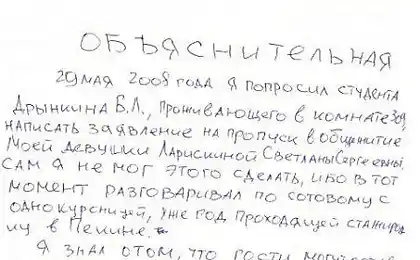 ОБЪЯСНИТЕЛЬНАЯ
29 мая 2008 года я попросил студента
Дрынкина В.Л., проживающего в комнате
написать заявление на пропуск в общежитие
моей девушки Ларискиной Светланы Сергеевны.
Сам я не мог этого сделать, ибо в тот
момент разговаривал по сотовому с
однокурсницей, уже год проходящей стажиров
ку в Пекине.
Я знал о том, что гости